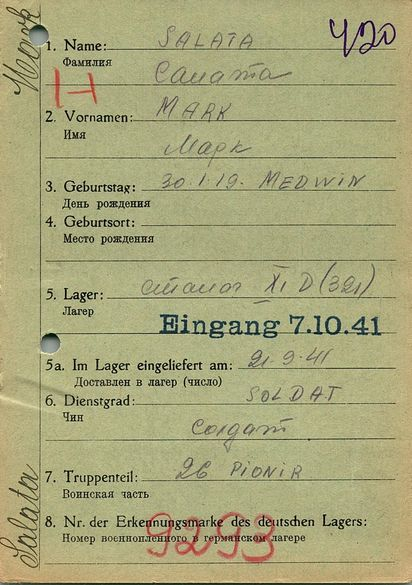 420
1. Name: SALATA
Фамилия
Салата
H
2. Vornamen: MARK
Имя
Марк
3. Geburtstag: 30.1.19. MEDWIN
День рождения
4. Geburtsort:
Место рождения
5. Lager: сталаг XI D (321)
Лагер
Eingang 7.10.41
5a. Im Lager eingeliefert am: 21.9.41
Доставлен в лагер (число)
6. Dienstgrad: SOLDAT
Чин
Солдат
7. Truppenteil: 26 PIONIR
Воинская часть
8. Nr. der Erkennungsmarke des deutschen Lagers:
Номер военнопленного в германском лагере
9293
Salata